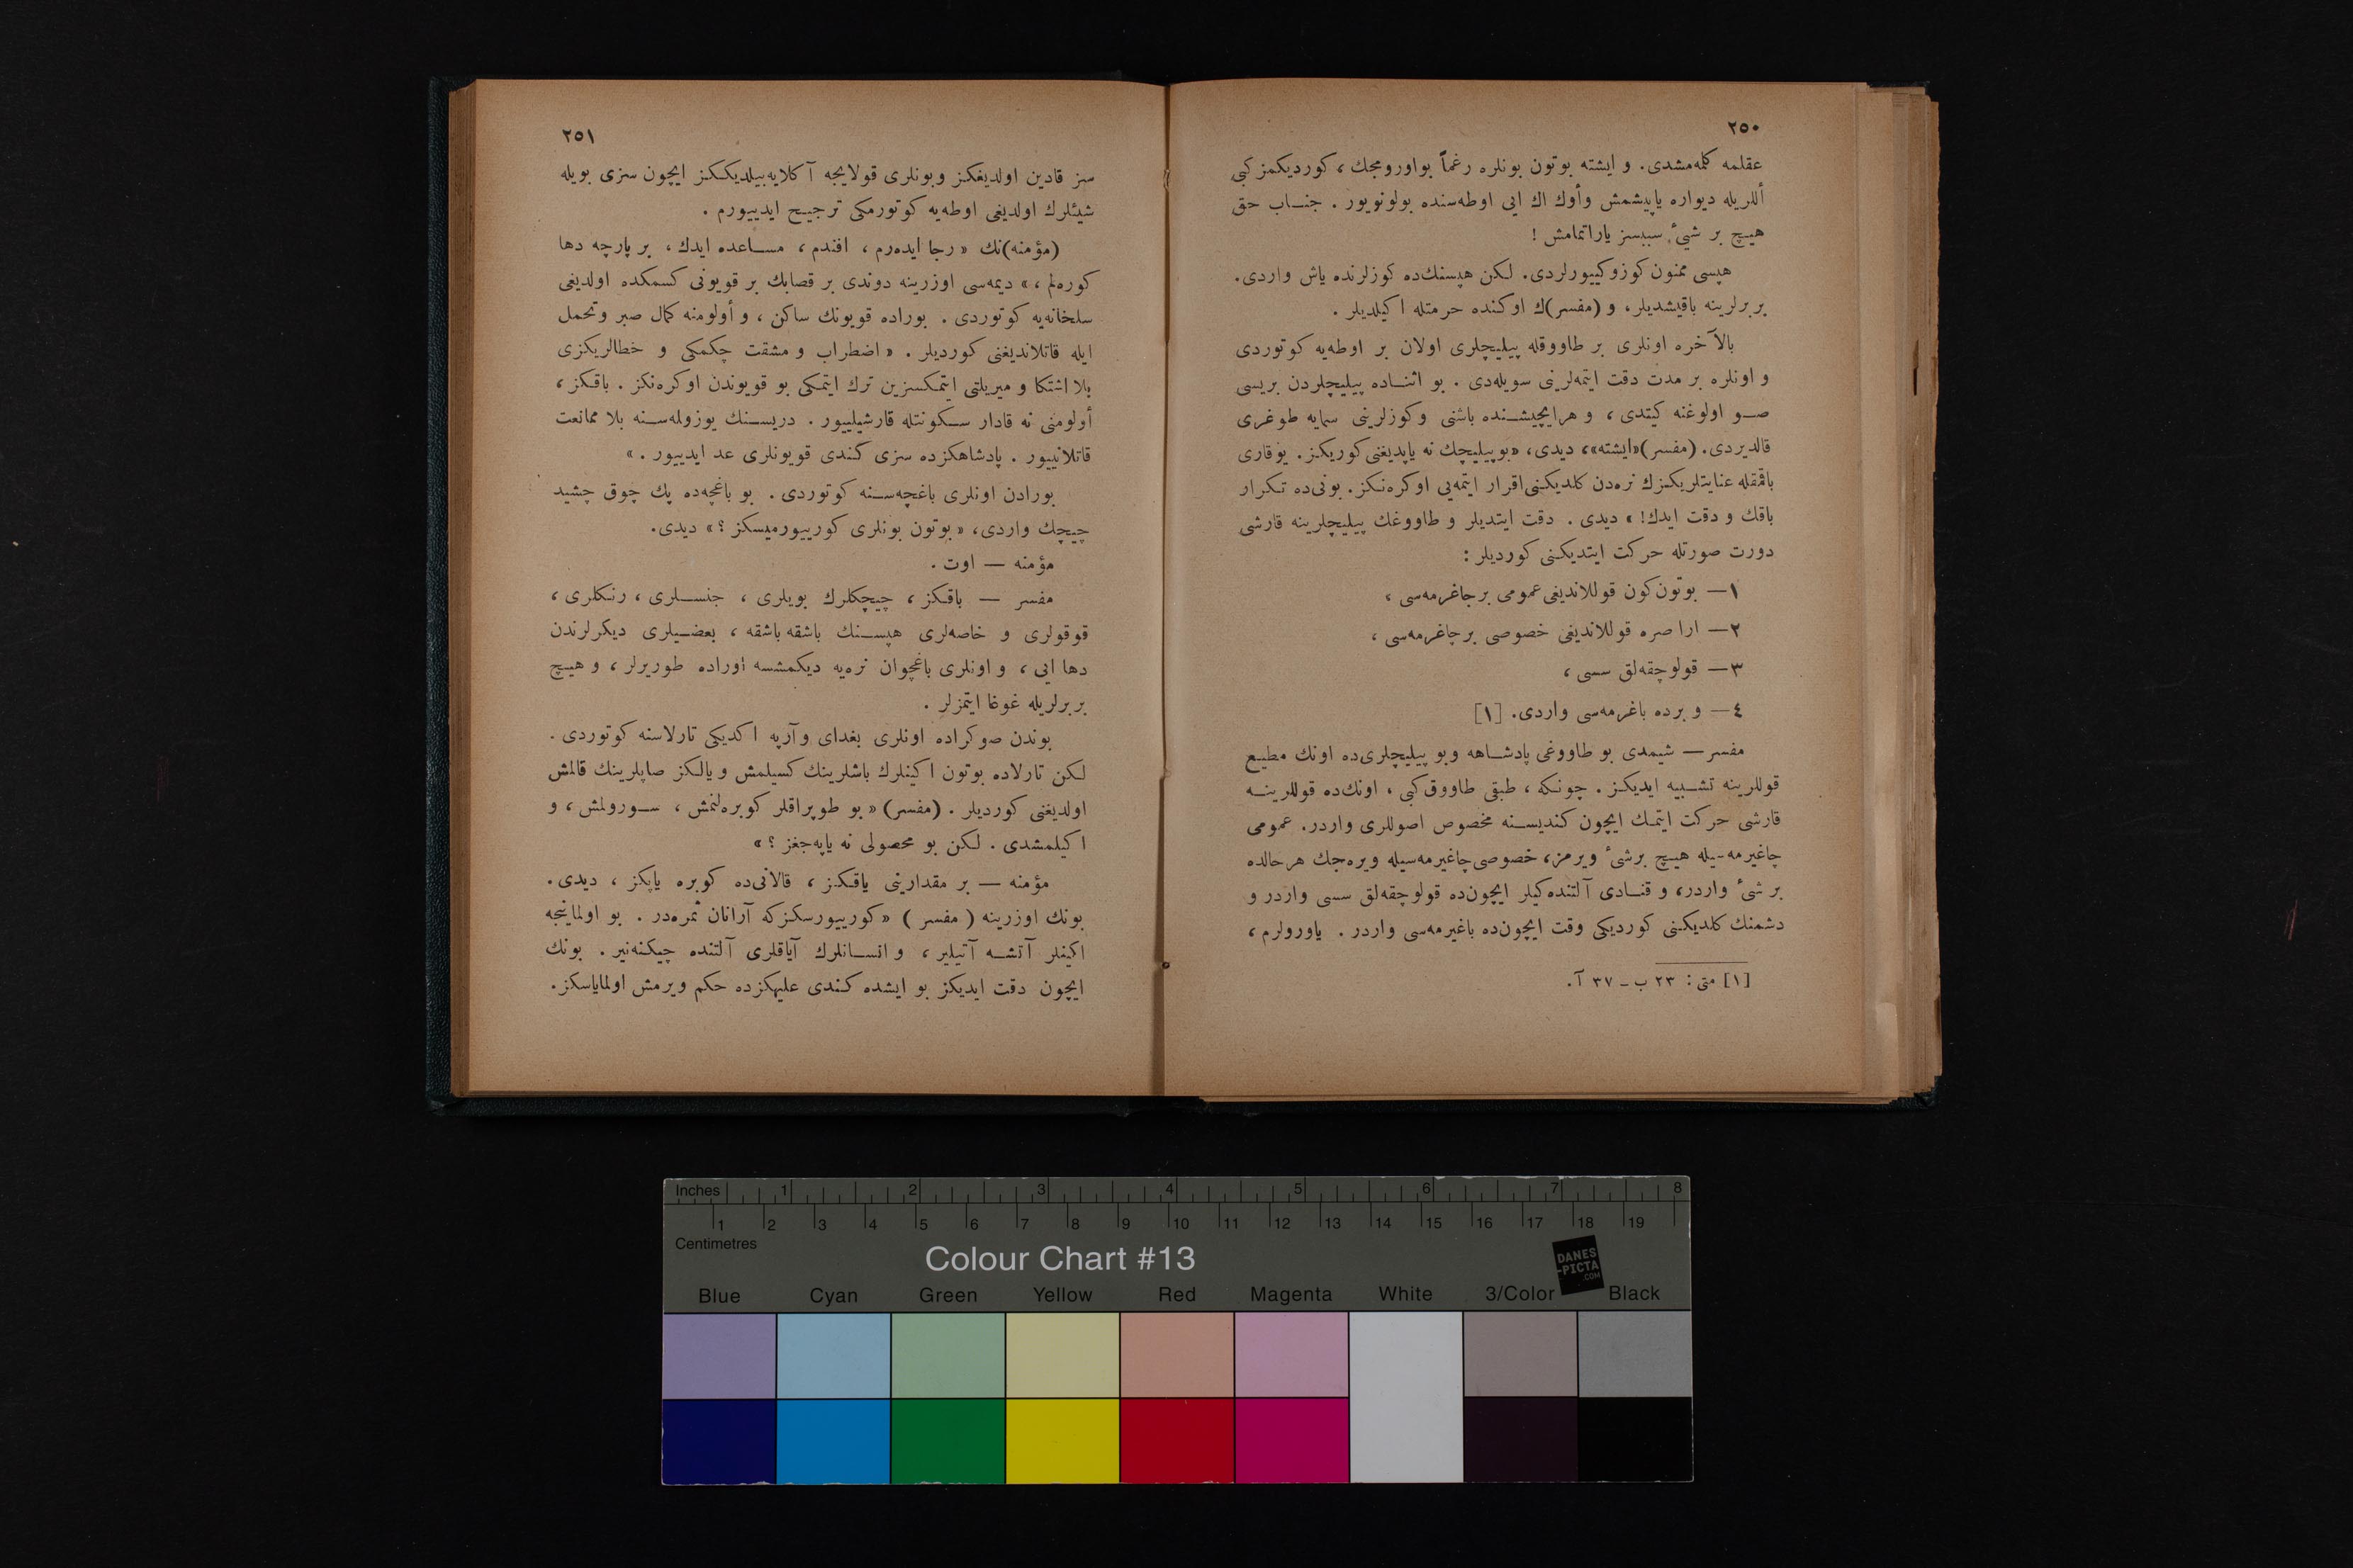 ٢٥٠
عقلمه كلمه‌مشدی. و ایشته بوتون بونلره رغماً بواورومجك، كوردیكمز كبی
أللریله دیواره یاپیشمش وأوك اك ایی اوطه‌سنده بولونویور . جنـاب حق
هیـچ بر شیئ سببسز یاراتمامش !
هپسی ممنون كوزوكییورلردی. لكن هپسنك‌ده كوزلرنده یاش واردی.
بربرلرینه باقیشدیلر، و (مفسر)ك اوكنده حرمتله اكیلدیلر .
بالآخره اونلری بر طاووقله پیلیچلری اولان بر اوطه‌یه كوتوردی
و اونلره بر مدت دقت ایتمه‌لرینی سویله‌دی . بو اثنـاده پیلیچلردن بریسی
صـو اولوغنه كیتدی ، و هرایچیشـنده باشنی وكوزلرینی سمایه طوغری
قالدیردی. (مفسر)«ایشته»، دیدی، «بوپیلیچك نه یاپدیغنی كوریكز. یوقاری
باقمقله عنایتلریكزك نره‌دن كلدیكنی‌اقرار ایتمه‌یی اوكره‌نكز. بونی‌ده تكرار
باقك و دقت ایدك! » دیدی . دقت ایتدیلر و طاووغك پیلیچلرینه قارشی
دورت صورتله حركت ایتدیكنی كوردیلر :
١— بوتون‌كون قوللاندیغی‌عمومی برجاغرمه‌سی ،
٢— ارا صره قوللاندیغی خصوصی برچاغرمه‌سی ،
٣— قولوچقه‌لق سسی ،
٤— و برده باغرمه‌سی واردی. [١]
مفسر— شیمدی بو طاووغی پادشـاهه وبو پیلیچلری‌ده اونك مطیع
قوللرینه تشـبیه ایدیكـز . چونكه ، طبقی طاووق كبی ، اونك‌ده قوللرینـه
قارشی حركت ایتمـك ایچون كندیسـنه مخصوص اصوللری واردر. عمومی
چاغیرمه‌سیله هیـچ برشیئ ویرمز، خصوصی‌چاغیرمه‌سیله ویره‌جك هرحالده
بر شیئ واردر، و قنـادی آلتنده‌كیلر ایچون‌ده قولوچقه‌لق سسی واردر و
دشمنك كلدیكنی كوردیكی وقت ایچون‌ده باغیرمه‌سی واردر . یاورولرم ،
[١] متی : ٢٣ ب - ٣٧ آ.
٢٥١
سز قادین اولدیغكز وبونلری قولایجه آكلایه‌بیلدیككـز ایچون سزی بویله
شیئلرك اولدیغی اوطه‌یه كوتورمكی ترجیـح ایدییورم .
(مؤمنه)نك « رجا ایده‌رم ، افندم ، مسـاعده ایدك ، بر پارچه دها
كوره‌لم ، » دیمه‌سی اوزرینه دوندی بر قصابك بر قویونی كسمكده اولدیغی
سلخانه‌یه كوتوردی . بوراده قویونك ساكن ، و أولومنه كمال صبر وتحمل
ایله قاتلاندیغنی كوردیلر . « اضطراب و مشقت چكمكی و خطالریكزی
بلا اشتكا و میریلتی ایتمكسزین ترك ایتمكی بو قویوندن اوكره‌نكز . باقكز ،
أولومنی نه قادار سـكونتله قارشیلییور . دریسـنك یوزولمه‌سـنه بلا ممانعت
قاتلانییور . پادشاهكزده سزی كندی قویونلری عد ایدییور . »
بورادن اونلری باغچه‌سـنه كوتوردی . بو باغچه‌ده پك چوق چشید
چیچك واردی، « بوتون بونلری كورییورمیسكز ؟ » دیدی.
مؤمنه — اوت .
مفسر — باقـكز ، چیچكلرك بویلری ، جنسـلری ، رنكلری ،
قوقولری و خاصه‌لری هپسـنك باشقه باشقه ، بعضـیلری دیكرلرندن
دها ایی ، و اونلری باغچوان نره‌یه دیكمشسه اوراده طوریرلر ، و هیـچ
بربرلریله غوغا ایتمزلر .
بوندن صوكراده اونلری بغدای وآرپه اكدیكی تارلاسنه كوتوردی .
لكن تارلاده بوتون اكینلرك باشلرینك كسیلمش و یالكز صاپلرینك قالمش
اولدیغنی كوردیلر . (مفسر) « بو طوپراقلر كوبره‌لنمش ، سـورولمش ، و
اكیلمشدی . لكن بو محصولی نه یاپه‌جغز ؟ »
مؤمنه — بر مقدارینی یاقـكز ، قالانی‌ده كوبره یاپكز ، دیدی.
بونك اوزرینه ( مفسر ) « كورییورسكزكه آرانان ثمره‌در . بو اولماینجه
اكینلر آتشـه آتیلیر ، و انسـانلرك آیاقلری آلتنده چیكنه‌نیر . بونك
ایچون دقت ایدیكز بو ایشده كندی علیهكزده حكم ویرمش اولمایاسكز.
Inches 1 2 3 4 5 6 7 8
1 2 3 4 5 6 7 8 9 10 11 12 13 14 15 16 17 18 19
Centimetres
Colour Chart #13
DANES
-PICTA
.COM
Blue Cyan Green Yellow Red Magenta White 3/Color Black